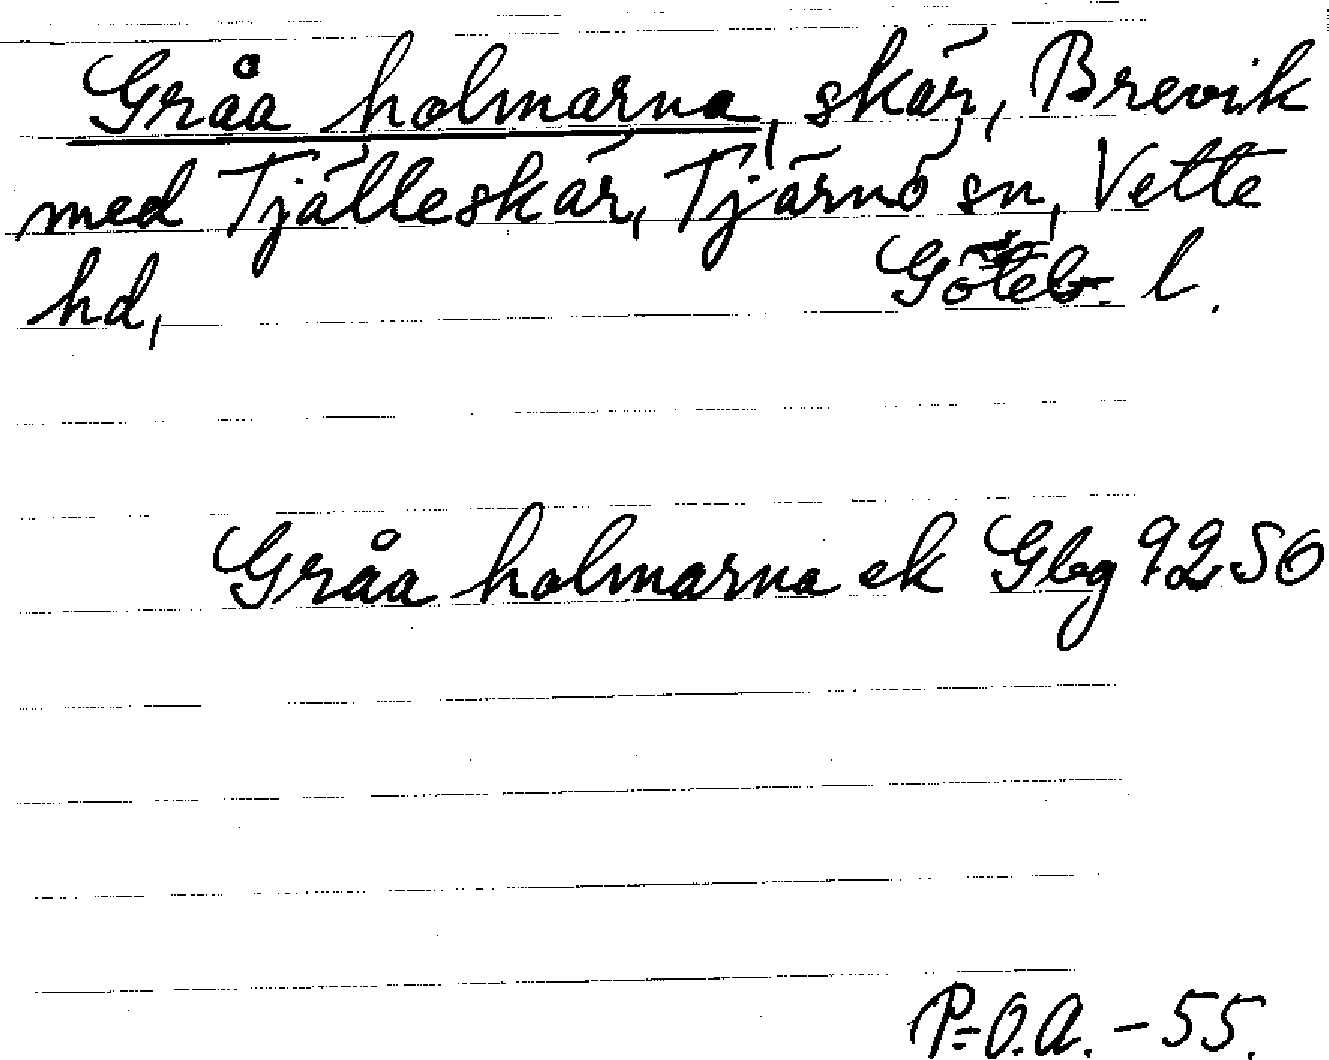 Gråa holmarna, skär, Brevik
med Tjälleskär, Tjärnö sn, Vette
hd, Göteb. l.
Gråa holmarna ek Gbg 9250
P-O.A. - 55.